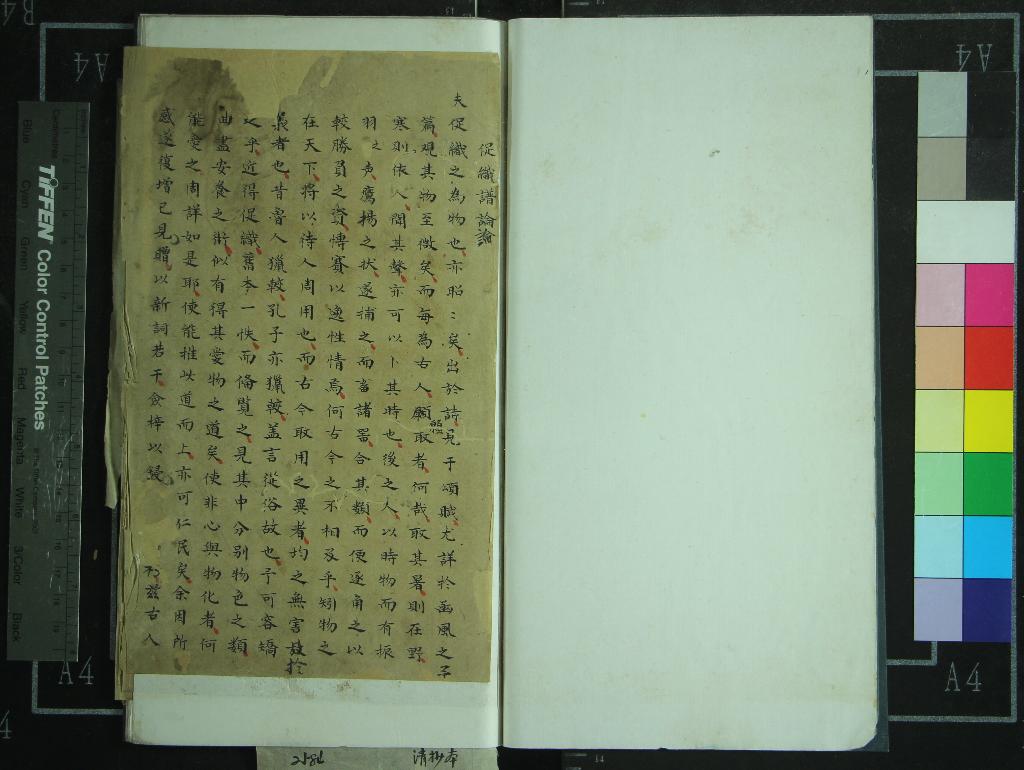 促織譜論
夫促織之為物也亦昭〻矣出於詩見于頌賦尤詳於豳風之
篇觀其物至微矣而每為古人願取者何哉取其暑則在野
寒則依人聞其聲亦可以卜其時也後之人以時物而有振
羽之声鷹揚之状遂捕之而畜諸器合其類而便逐角之以
較勝負之資博賽以逸性情焉何古今之不相及乎矧物之
在天下將以待人周用也而古今取用之異者均之無害於
義者也昔魯人獵較孔子亦獵較盖言從俗故也予可容矯
之乎近得促織舊本一帙而俻覽之見其中分别物色之類
曲盡安養之術似有得其愛物之道矣使非心與物化者何
能愛之周詳如是耶使能推此道而上亦可仁民矣余因所
感遂復增己見贈以新詞若干僉梓以
兹古人
TIFFEN Color Control Patches
Blue Cyan Green Yellow Red Magenta White 3/Color Black
A4
A4
A4
A4
B4
清抄本